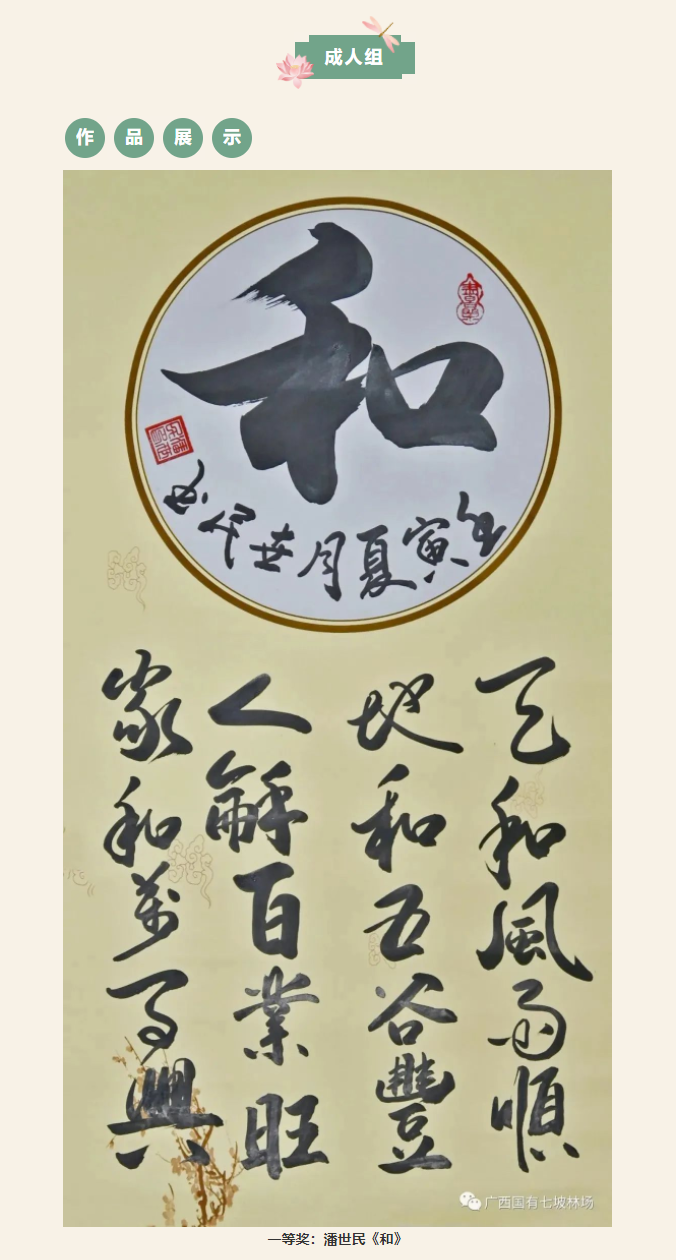 成人组
作品展示
和
壬寅夏月世民书
天和風雨順
地和五谷豐
人龢百業旺
家和萬事興
广西国有七坡林场
一等奖：潘世民《和》